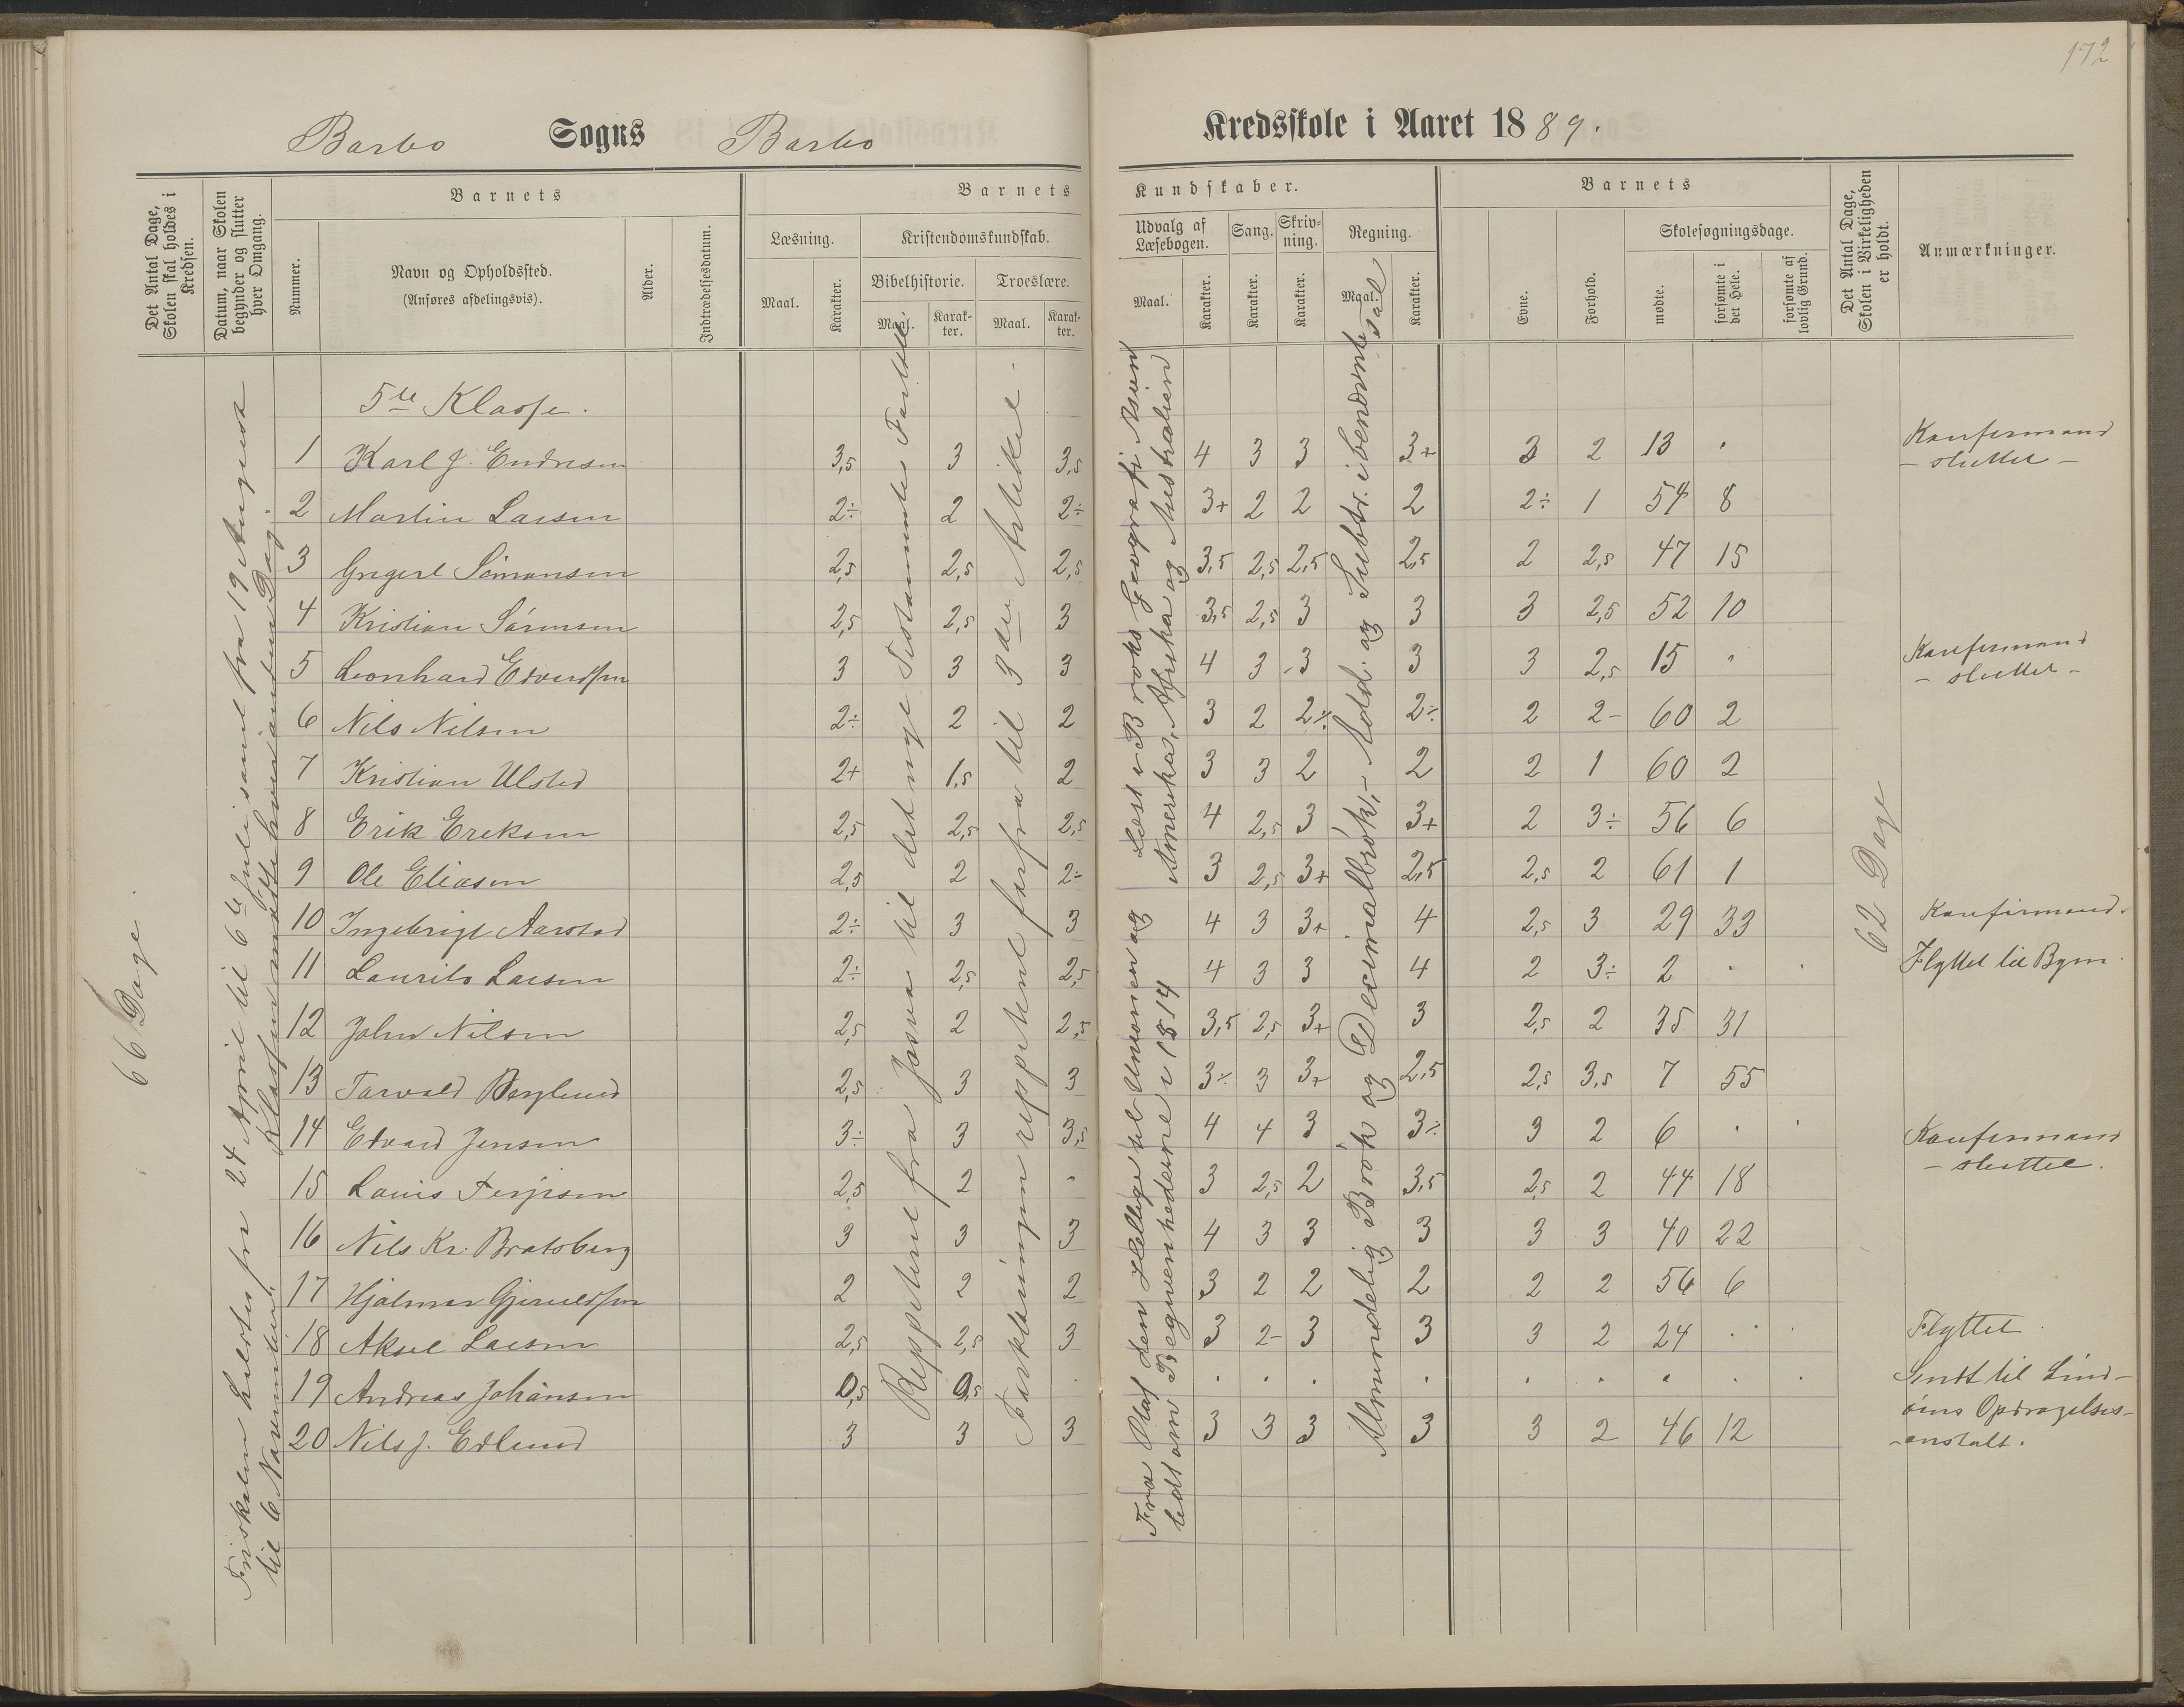 172
Barbo Sogns Barbo Kredsskole i Aaret 1889.
Det Antal Dage, Skolen skal holdes i Kredsen.
Datum, naar Skolen begynder og slutter hver Omgang.
Barnets
Nummer.
Navn og Opholdssted.
(Anføres afdelingsvis).
Alder.
Indtrædelsesdatum.
Barnets Kundskaber.
Læsning.
Maal.
Karakter.
Kristendomskundskab.
Bibelhistorie.
Maal.
Karakter.
Troeslære.
Maal.
Karakter.
Udvalg af Læsebogen.
Maal.
Karakter.
Sang.
Karakter.
Skrivning.
Karakter.
Regning.
Maal.
Karakter.
Barnets
Evne.
Forhold.
Skolesøgningsdage.
mødte.
forsømte i det Hele.
forsømte af lovlig Grund.
Det Antal Dage, Skolen i Virkeligheden er holdt.
Anmærkninger.
66 Dage.
fra 24 April til 6te Juli samt fra 19 August
til 6 November.
Klassen mødte hver anden Dag.
Reppeteret fra Josva til det nye Testamente
Forklaringen reppeteret forfra til 3die Artikel.
Fra Olaf den Hellige til Unionen og
lidt om Begivenhederne i 1814
Læst i Broks Geografi Asien
Amerika, Afrika og Australien
Almindelig Brøk og Decimalbrøk, Add. og Subtr. i benævnte Tal
62 Dage
5te Klasse.
1 Karl J. Endresen 3,5 3 3,5 4 3 3 3+ 3 2 13 " Konfirmand
- sluttet -
2 Martin Larsen 2÷ 2 2÷ 3+ 2 2 2 2÷ 1 54 8
3 Simonsen 2,5 2,5 2,5 3,5 2,5 2,5 2,5 2 2,5 47 15
4 Kristian Sørensen 2,5 2,5 3 3,5 2,5 3 3 3 2,5 52 10
5 Leonhard Edvardsen 3 3 3 4 3 3 3 3 2,5 15 " Konfirmand
- sluttet -
6 Nils Nilsen 2÷ 2 2 3 2 2÷ 2÷ 2 2- 60 2
7 Kristian Ulsted 2+ 1,5 2 3 3 2 2 2 1 60 2
8 Erik Ereksen 2,5 2,5 2,5 4 2,5 3 3+ 2 3÷ 56 6
9 Ole Eliasen 2,5 2 2÷ 3 2,5 3+ 2,5 2,5 2 61 1
10 Ingebrigt Aarstad 2÷ 3 3 4 3 3+ 4 2,5 3 29 33 Konfirmand.
11 Laurits Larsen 2÷ 2,5 2,5 4 3 3 4 2 3÷ 2 " Flyttet til Byen.
12 John Nilsen 2,5 2 2,5 3,5 2,5 3+ 3 2,5 2 35 31
13 Torvald Berglund 2,5 3 3 3÷ 3 3+ 2,5 2,5 3,5 7 55
14 Edvard Jensen 3÷ 3 3,5 4 4 3 3÷ 3 2 6 " Konfirmand
- sluttet.
15 Louis Terjesen 2,5 2 " 3 2,5 2 3,5 2,5 2 44 18
16 Nils Kr. Bratsberg 3 3 3 4 3 3 3 3 3 40 22
17 Hjalmar Gjeruldsen 2 2 2 3 2 2 2 2 2 56 6
18 Aksel Larsen 2,5 2,5 3 3 2- 3 3 3 2 24 " Flyttet.
19 Andreas Johansen 0,5 0,5 . . . . . . . . . Sendt til Lind-
øens Opdragelses-
anstalt.
20 Nils J. Edlund 3 3 3 3 3 3 3 3 2 46 12